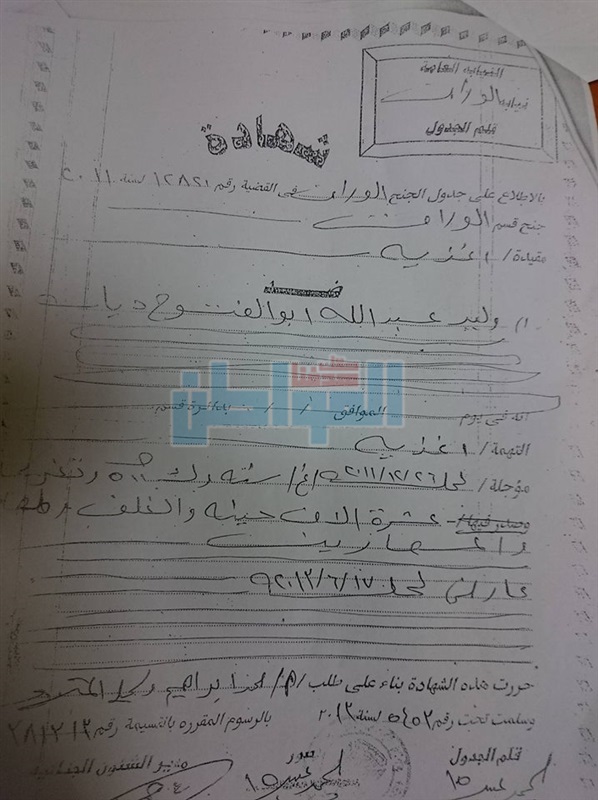 النيابة العامة
نيابة الوراق
قلم الجدول
شهادة
بالاطلاع على جدول الجنح الوراق فى القضية رقم ١٢٨٢١ لسنة ٢٠١١
جنح قسم الوراق
مقيدة / اغذية
ضد
١) وليد عبدالله ابوالفتوح دياب
المواطن
انه فى يوم الموافق / / بدائرة قسم
التهمة / اغذية
مؤجلة / لجلسة ٢٠١١/١٢/٢٦ غ/ سنة وك
وصدر فيها /- عشرة الاف جنيه والغلق
والمصاريف
عارض لجلسة ٢٠١٢/٦/١٧
حررت هذه الشهادة بناء على طلب /م/ ابراهيم
وسلمت تحت رقم ٥٤٥٢ لسنة ٢٠١٢ بالرسوم المقرره بالقسيمة رقم
قلم الجدول صور مدير الشئون الجنائية